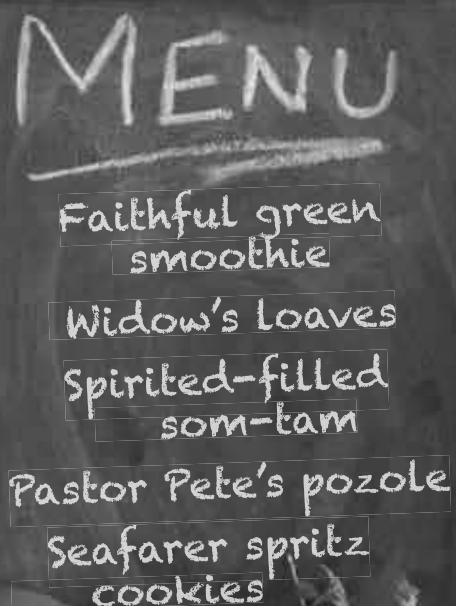 MENU
Faithful green
smoothie
Widow's loaves
Spirited-filled
som-tam
Pastor Pete's pozole
Seafarer spritz
cookies